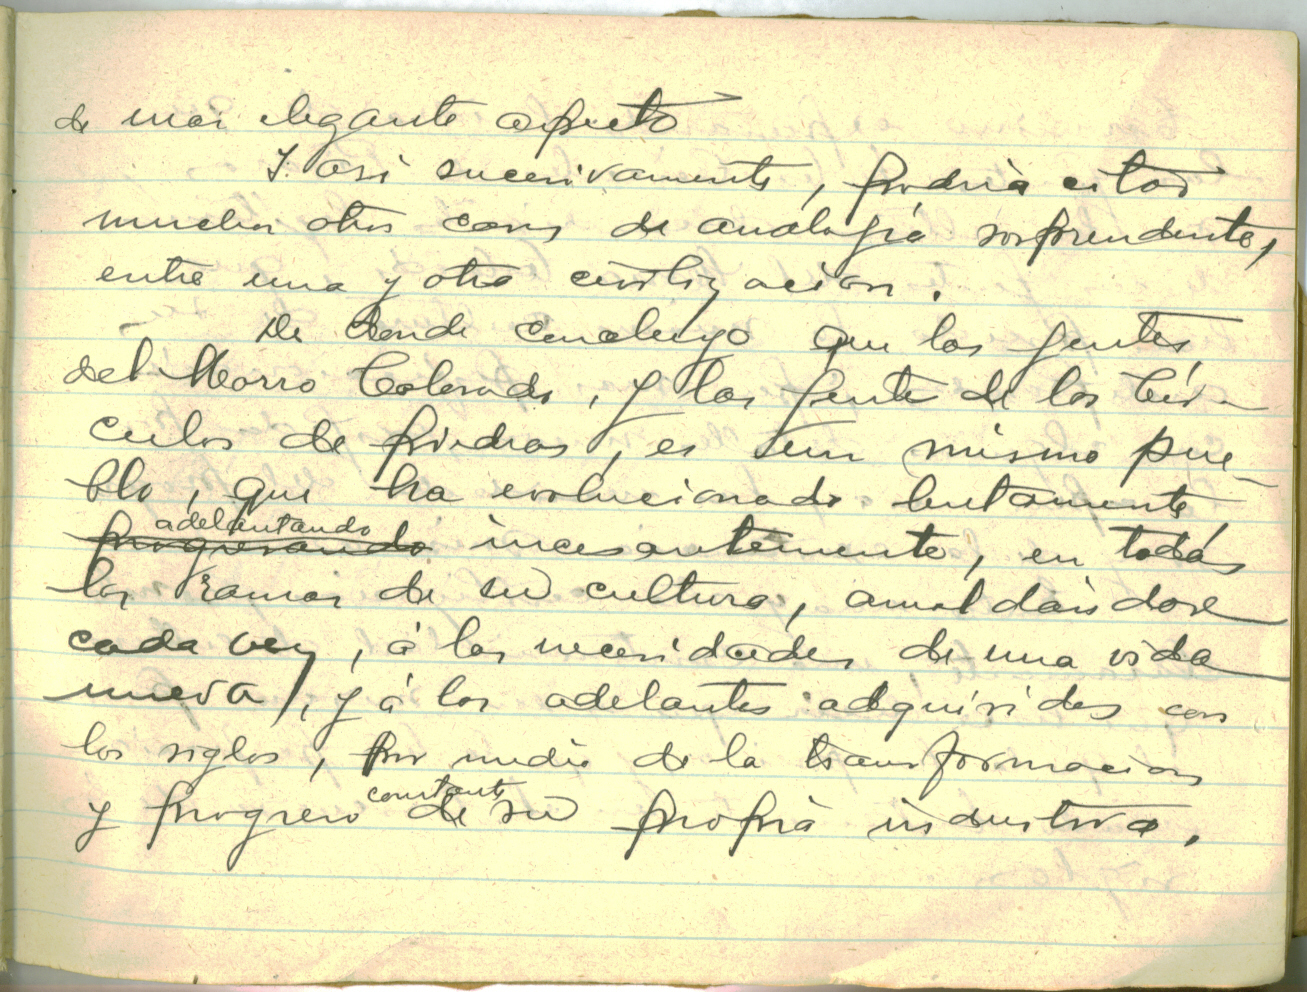 de mas elegante aspecto
Y asi sucesivamente, podria citar
muchos otros casos de analogia sorprendente,
entre una y otra civilizacion.
De donde concluyo que las gentes
del Morro Colorado, y las gente de los Cír-
culos de piedras, es un mismo pue-
blo, que ha evolucionado lentamente,
adelantando
progresando incesantemente, en todas
las ramas de su cultura, amoldándose
cada vez, á las necesidades de una vida
nueva, y á los adelantes adquiridos con
los siglos, por medio de la transformacion
constante
y progreso de su propia industria.